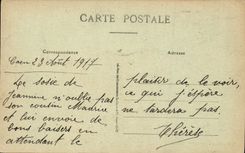 CARTE POSTALE
Correspondance
Adresse
Caen 23 Août 1917
Le sosie de
Jeannine n'oublie pas
son cousin Maurice
et lui envoie de
bons baisers en
attendant le
plaisir de le voir,
ce qui j'espère
ne tardera pas.
Thérèse